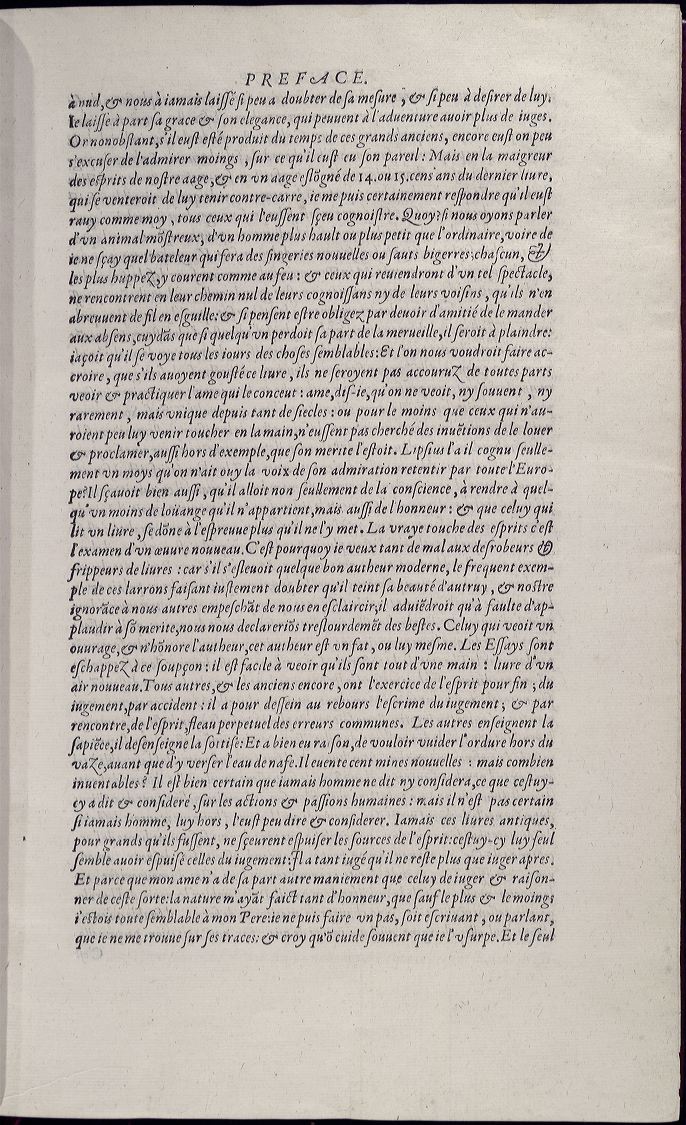 PREFACE.
à nud, & nous à iamais laissé si peu a doubter de sa mesure ; & si peu à desirer de luy.
Ie laisse à part sa grace & son elegance, qui peuuent à l'aduenture auoir plus de iuges.
Or nonobstant, s'il eust esté produit du temps de ces grands anciens, encore eust on peu
s'excuser de l'admirer moings , sur ce qu'il eust eu son pareil : Mais en la maigreur
des esprits de nostre aage, & en vn aage eslōgné de 14. ou 15. cens ans du dernier liure,
qui se venteroit de luy tenir contre-carre, ie me puis certainement respondre qu'il eust
rauy comme moy , tous ceux qui l'eussent sçeu cognoistre. Quoy? si nous oyons parler
d'vn animal mōstreux, d'vn homme plus hault ou plus petit que l'ordinaire, voire de
ie ne sçay quel bateleur qui fera des singeries nouuelles ou sauts bigerres, chascun, &
les plus huppez, y courent comme au feu : & ceux qui reuiendront d'vn tel spectacle,
ne rencontrent en leur chemin nul de leurs cognoissans ny de leurs voisins , qu'ils n'en
abreuuent de fil en esguille: & si pensent estre obligez par deuoir d'amitié de le mander
aux absens, cuydās que si quelqu'vn perdoit sa part de la merueille, il seroit à plaindre:
iaçoit qu'il se voye tous les iours des choses semblables: Et l'on nous voudroit faire ac-
croire , que s'ils auoyent gousté ce liure , ils ne seroyent pas accouruz de toutes parts
veoir & practiquer l'ame qui le conceut : ame, dis-ie, qu'on ne veoit, ny souuent , ny
rarement , mais vnique depuis tant de siecles : ou pour le moins que ceux qui n'au-
roient peu luy venir toucher en la main, n'eussent pas cherché des inuētions de le louer
& proclamer, aussi hors d'exemple, que son merite l'estoit. Lipsius l'a il cognu seulle-
ment vn moys qu'on n'ait ouy la voix de son admiration retentir par toute l'Euro-
pe? Il sçauoit bien aussi , qu'il alloit non seullement de la conscience, à rendre à quel-
qu'vn moins de loüange qu'il n'appartient, mais aussi de l'honneur : & que celuy qui
lit vn liure , se dōne à l'espreuue plus qu'il ne l'y met. La vraye touche des esprits c'est
l'examen d'vn œuure nouueau. C'est pourquoy ie veux tant de mal aux desrobeurs &
frippeurs de liures : car s'il s'esleuoit quelque bon autheur moderne, le frequent exem-
ple de ces larrons faisant iustement doubter qu'il teint sa beauté d'autruy , & nostre
ignorāce à nous autres empeschāt de nous en esclaircir, il aduiēdroit qu'à faulte d'ap-
plaudir à sō merite, nous nous declareriōs treslourdemēt des bestes. Celuy qui veoit vn
ouurage, & n'hōnore l'autheur, cet autheur est vn fat , ou luy mesme. Les Essays sont
eschappez à ce soupçon : il est facile à veoir qu'ils sont tout d'vne main : liure d'vn
air nouueau. Tous autres, & les anciens encore , ont l'exercice de l'esprit pour fin ; du
iugement, par accident : il a pour dessein au rebours l'escrime du iugement ; & par
rencontre, de l'esprit, fleau perpetuel des erreurs communes. Les autres enseignent la
sapiēce, il desenseigne la sottise: Et a bien eu raison, de vouloir vuider l'ordure hors du
vaze, auant que d'y verser l'eau de nafe. Il euente cent mines nouuelles : mais combien
inuentables? Il est bien certain que iamais homme ne dit ny considera, ce que cestuy-
cy a dit & consideré , sur les actions & passions humaines : mais il n'est pas certain
si iamais homme, luy hors , l'eust peu dire & considerer. Iamais ces liures antiques,
pour grands qu'ils fussent, ne sçeurent espuiser les sources de l'esprit: cestuy-cy luy seul
semble auoir espuisé celles du iugement: Il a tant iugé qu'il ne reste plus que iuger apres.
Et parce que mon ame n'a de sa part autre maniement que celuy de iuger & raison-
ner de ceste sorte: la nature m'ayāt faict tant d'honneur, que sauf le plus & le moings
i'estois toute semblable à mon Pere: ie ne puis faire vn pas, soit escriuant , ou parlant,
que ie ne me trouue sur ses traces: & croy qu'ō cuide souuent que ie l'vsurpe. Et le seul